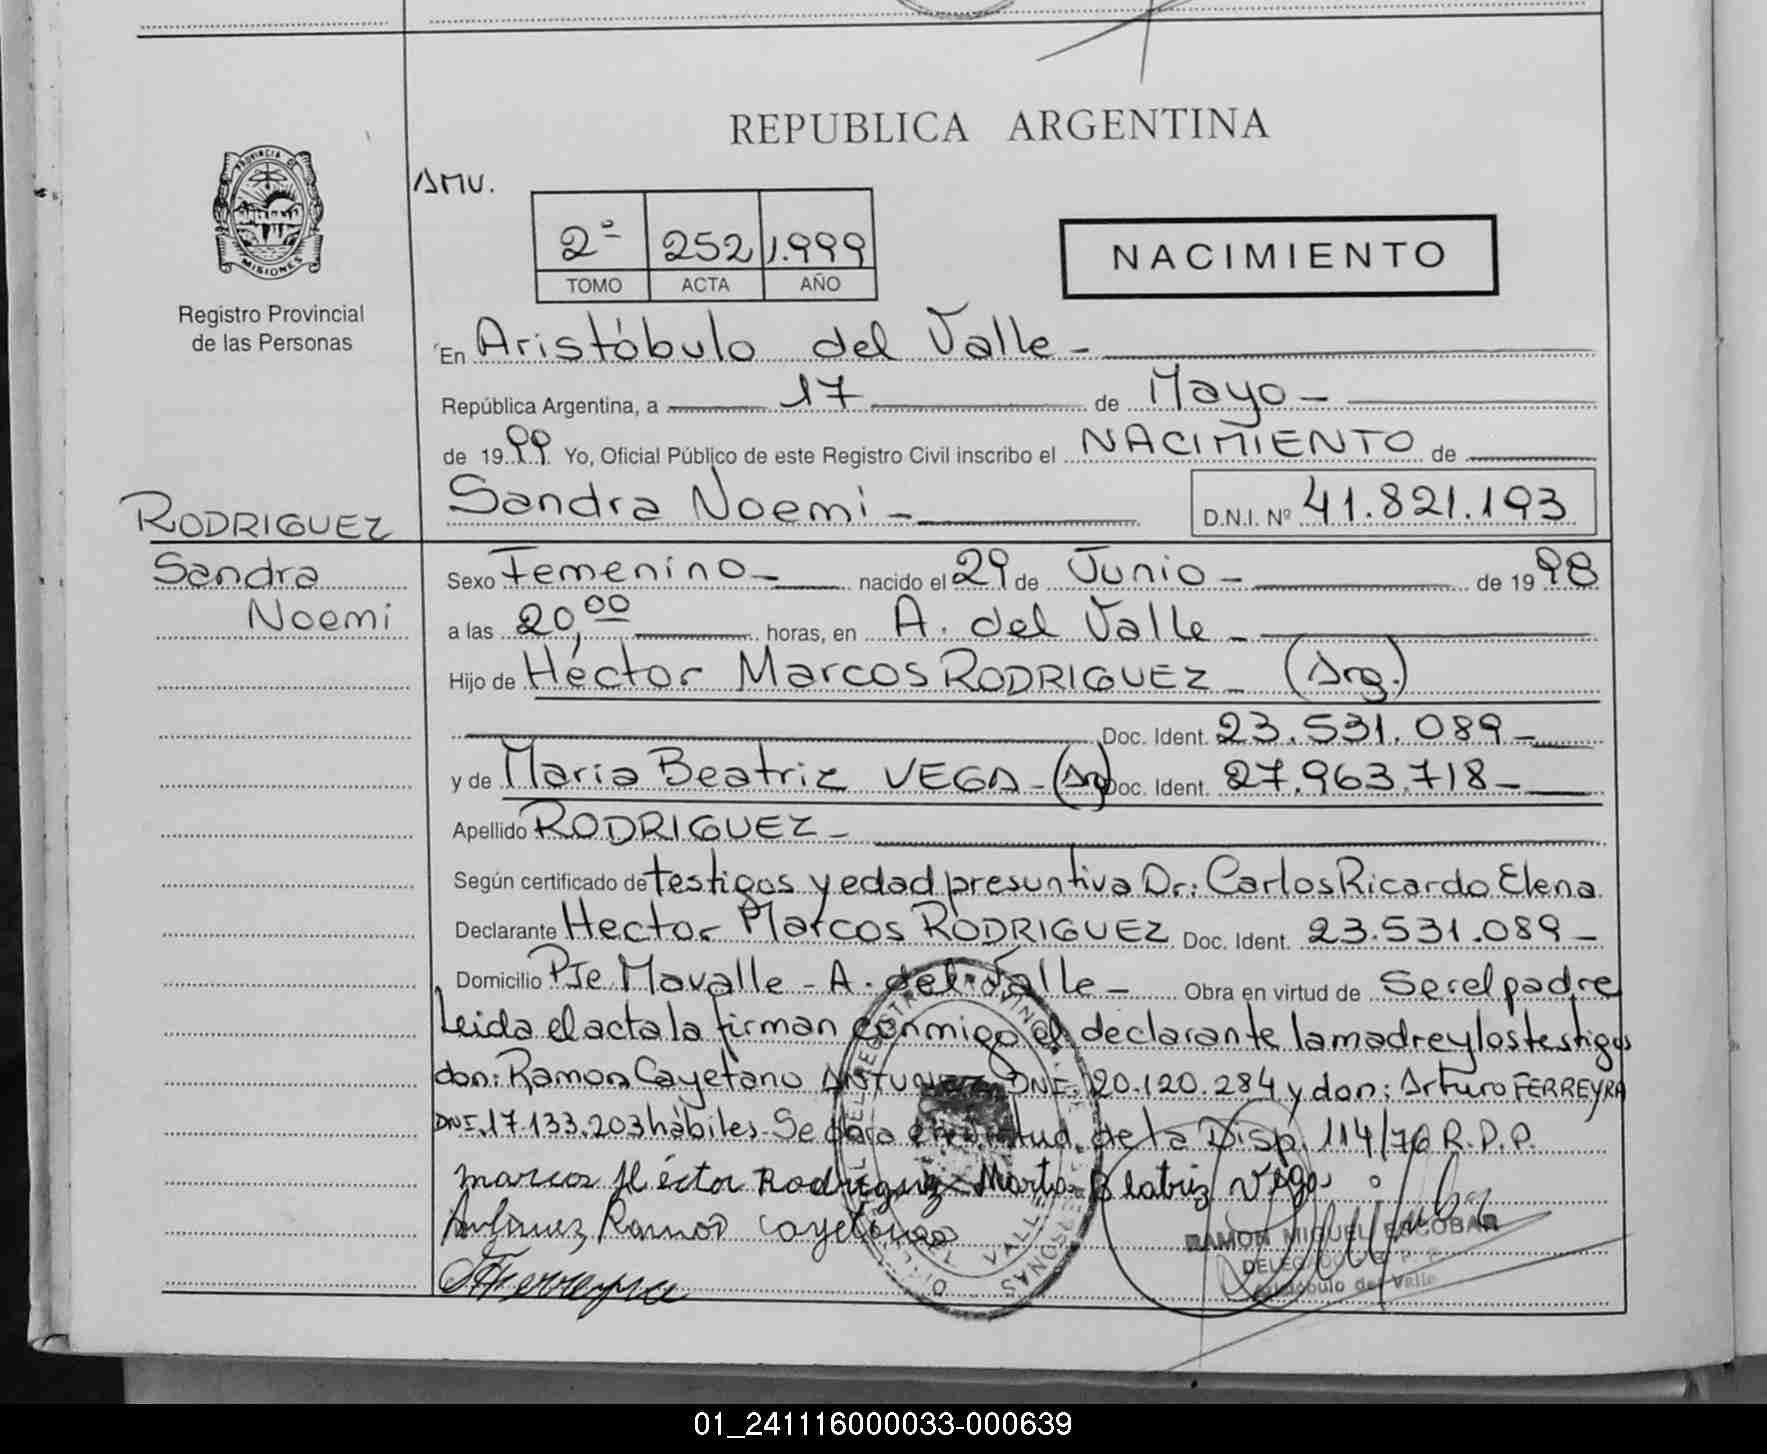 REPUBLICA ARGENTINA
PROVINCIA DE
MISIONES
Registro Provincial
de las Personas
AMU.
2º 252 1.999
TOMO ACTA AÑO
NACIMIENTO
En Aristóbulo del Valle -
República Argentina, a 17 de Mayo -
de 1999 Yo, Oficial Público de este Registro Civil inscribo el NACIMIENTO de
Sandra Noemi - D.N.I. Nº 41.821.193
RODRIGUEZ
Sandra
Noemi
Sexo Femenino - nacido el 29 de Junio - de 1998
a las 20,00 horas, en A. del Valle -
Hijo de Héctor Marcos RODRIGUEZ - (Arg.)
Doc. Ident. 23.531.089 -
y de Maria Beatriz VEGA - (Arg) Doc. Ident. 27.963.718 -
Apellido RODRIGUEZ -
Según certificado de testigos y edad presuntiva Dr.: Carlos Ricardo Elena
Declarante Hector Marcos RODRIGUEZ Doc. Ident. 23.531.089 -
Domicilio Pje Mavalle - A. del Valle - Obra en virtud de Ser el padre
Leida el acta la firman conmigo el declarante la madre y los testigos
don: Ramon Cayetano ANTUNEZ DNI. 20.120.284 y don: Arturo FERREYRA
DNI. 17.133.203 hábiles - Se labra en virtud de la Disp. 114/76 R.P.P.
marcos Héctor Rodriguez Maria Beatriz Vega
Antunez Ramon Cayetano
Ferreyra
RAMON MIGUEL ESCOBAR
DELEGADO R. P. P.
Aristóbulo del Valle
01_241116000033-000639